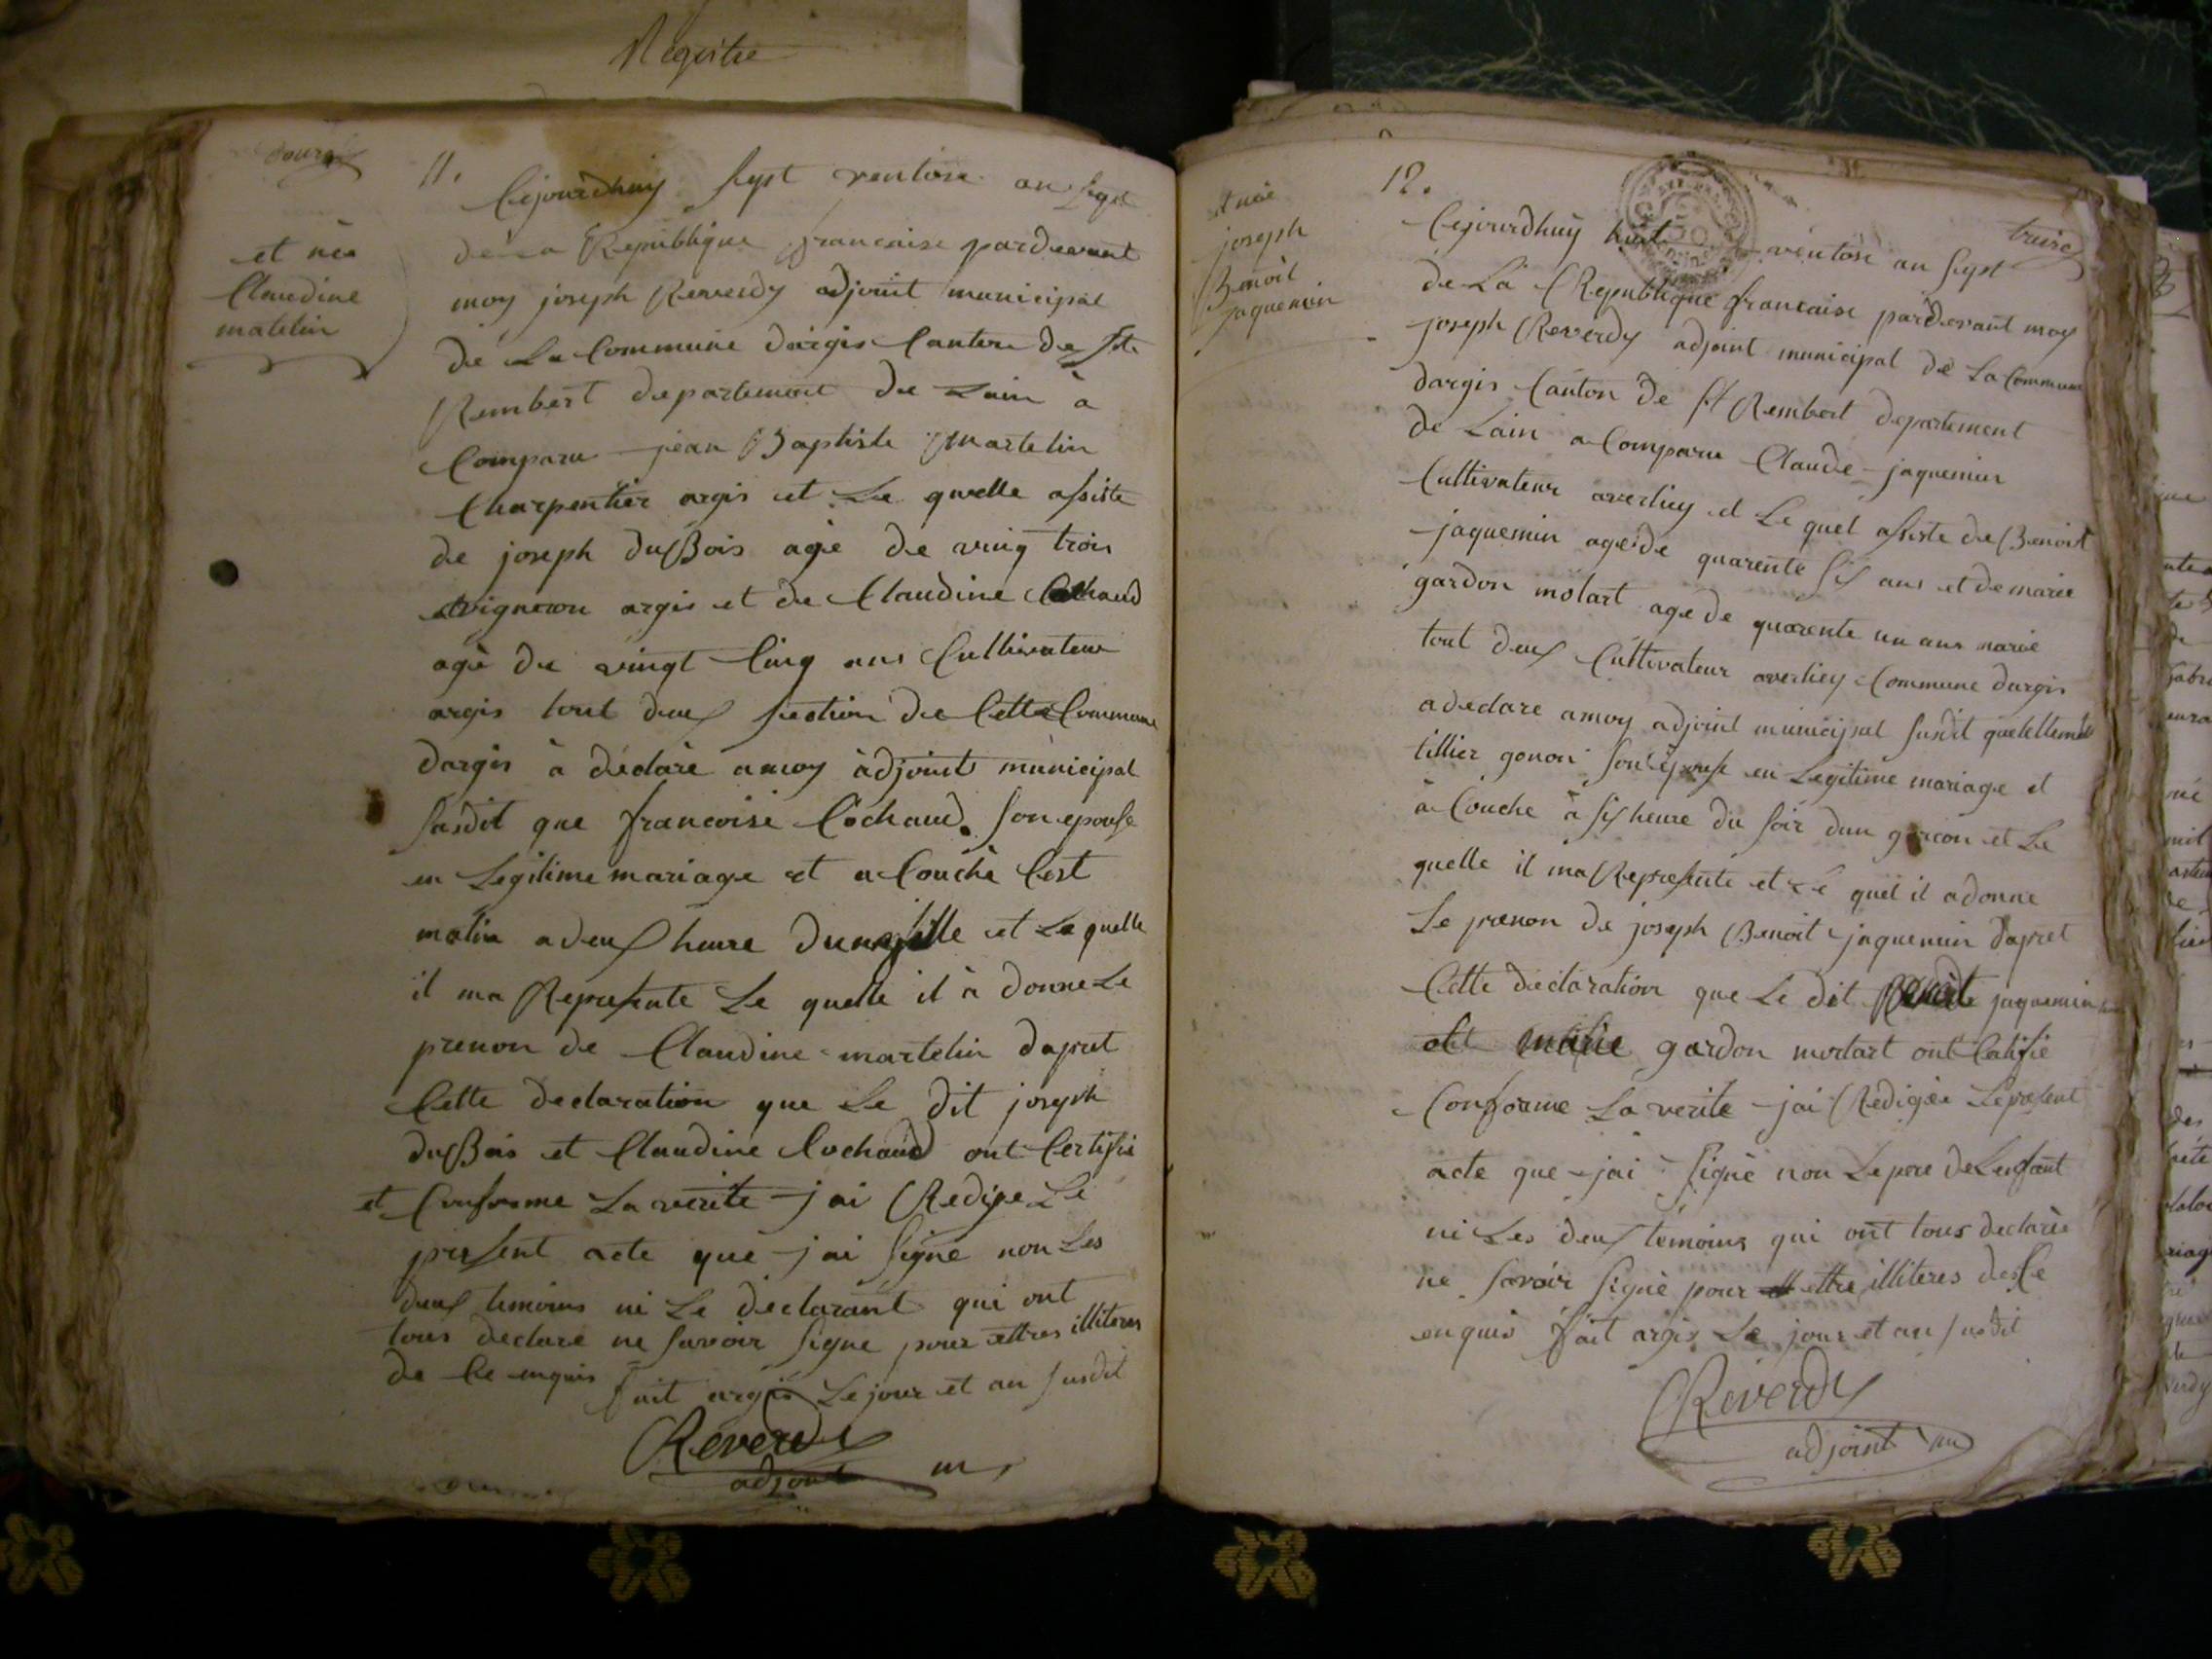 Registre
douze
11.
et née
Claudine
matelin
Cejourdhuy sept ventose an sept
de La Republique francaise pardevant
moy joseph Reverdy adjoint municipal
de La Commune dargis Canton de st
Rembert departement de Lain à
Comparu jean Baptiste martelin
Charpentier argis et Le quelle assiste
de joseph duBois agé de ving trois
vigneron argis et de Claudine Cochaud
agé de vingt Cinq ans Cultivateur
argis tout deux section de Cette Commune
dargis à déclaré amoy àdjoint municipal
susdit que francoise Cochaud son epouse
en Legitime mariage et a Couché Cest
matin a deux heure dune fille et La quelle
il ma Representé Le quelle il à donne Le
prenon de Claudine martelin dapret
Cette declaration que Le dit joseph
duBois et Claudine Cochaud ont Certifié
et Conforme La verite jai Redige Le
present acte que jai signé non Les
deux temoins ni Le déclarant qui ont
tous declare ne savoir signe pour ettres illiteres
de Ce enquis fait argis Le jour et an susdit
Reverdy
adjoint m
12.
treize
et née
joseph
Benoit
jaquemin
Cejourdhuy huit ventose an sept
de La Republique francaise pardevant moy
joseph Reverdy adjoint municipal de La Commune
dargis Canton de st Rembert departement
de Lain a Comparu Claude jaquemin
Cultivateur averliey et Le quel assiste de Benoit
jaquemin agé de quarente six ans et de marie
gardon molart age de quarente un ans marie
tout deux Cultivateur averliey Commune dargis
a declare amoy adjoint municipal susdit que
tillier gonon son epouse en Legitime mariage et
à Couche à six heure du soir dun garcon et Le
quelle il ma Representé et Le quel il a donne
Le prenon de joseph Benoit jaquemin dapret
Cette declaration que Le dit Benoit jaquemin
et marie gardon mortart ont Certifié
Conforme La verite jai Redigée Le present
acte que jai signé non Le pere de Lenfant
ni Les deux temoins qui ont tous declarée
ne savoir signé pour ettre illiteres des Ce
enquis fait argis Le jour et an susdit
Reverdy
adjoint m